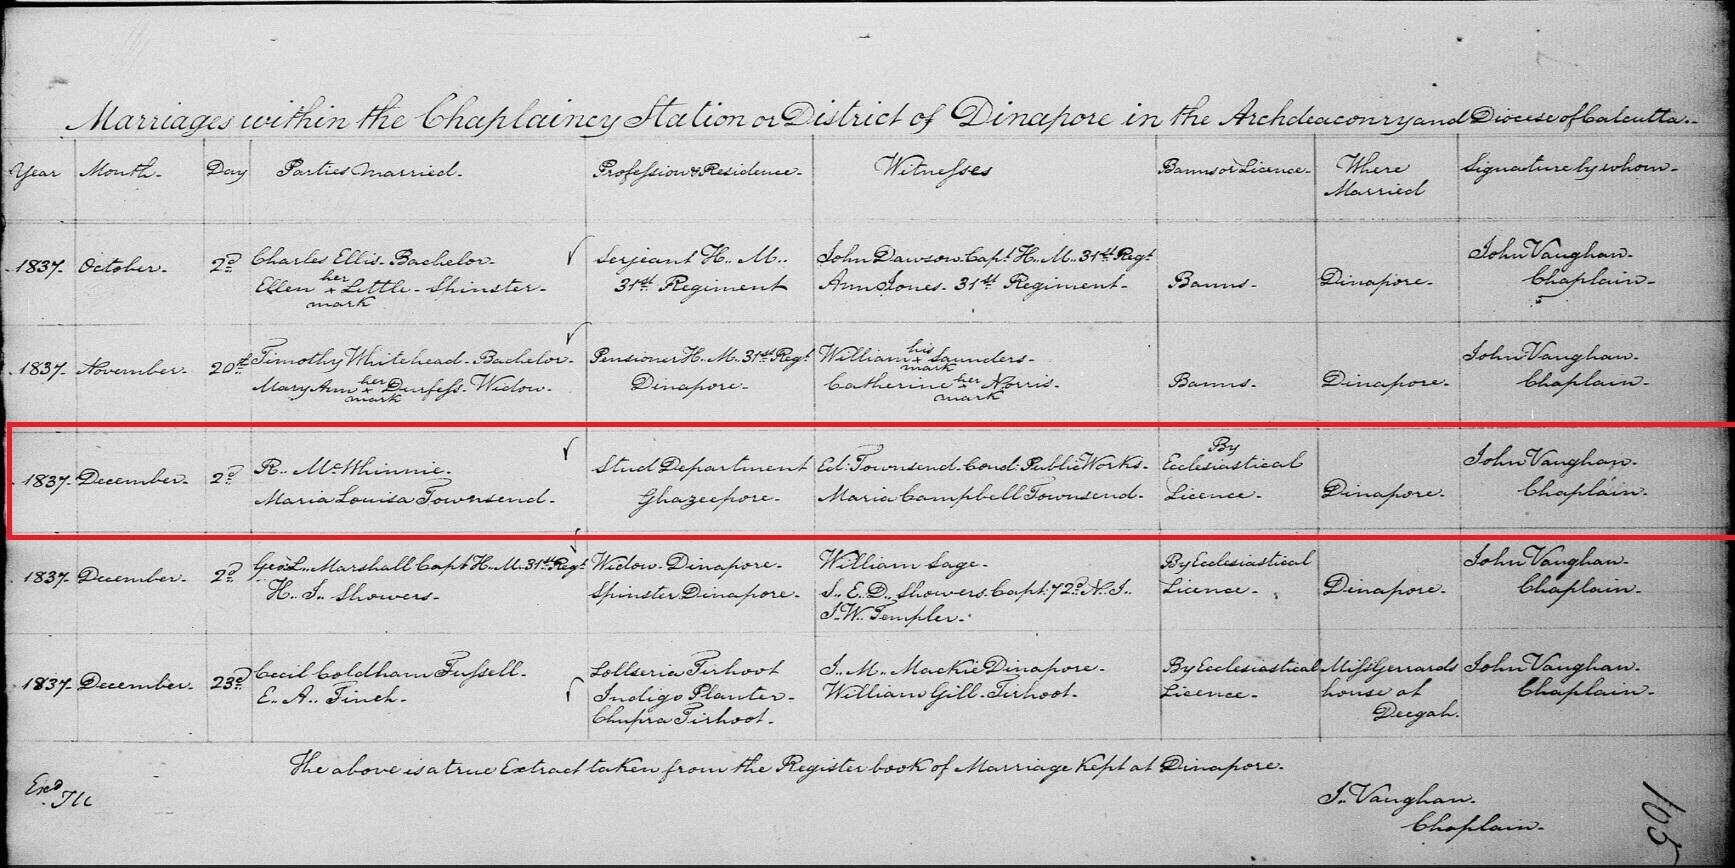 Marriages within the Chaplaincy Station or District of Dinapore in the Archdeaconry and Diocese of Calcutta.
Year Month. Day Parties Married. Profession & Residence. Witnesses Banns or Licence. Where Married Signature by whom.
1837. October. 2d Charles Ellis. Bachelor. Serjeant H.. M.. John Dawson. Capt. H.. M.. 31st Regt. Banns. Dinapore. John Vaughan.
Ellen her x mark Little. Spinster. 31st Regiment Ann Jones. 31st Regiment. Chaplain.
1837. November. 20th Timothy Whitehead. Bachelor. Pensioner H.. M.. 31st Regt. William his x mark Saunders. Banns. Dinapore. John Vaughan.
Mary Ann her x mark Widow. Dinapore. Catherine her x mark Norris. Chaplain.
1837. December. 2d R.. McWhinnie. Stud Department Ed. Townsend. Cond. Public Works. By Ecclesiastical Dinapore. John Vaughan.
Maria Louisa Townsend. Ghazeepore. Maria Campbell Townsend. Licence. Chaplain.
1837. December. 2d Geo. L.. Marshall Capt H.. M.. 31st Regt. Widow. Dinapore. William Sage. By Ecclesiastical Dinapore. John Vaughan.
H.. I.. Showers. Spinster. Dinapore. S.. E.. D.. Showers. Capt. 72d N.. I.. Licence. Chaplain.
J.. W.. Templer.
1837. December. 23d Cecil Coldham Fussell. Lollseria Tirhoot J.. M.. Mackie Dinapore. By Ecclesiastical Miss Gerrards John Vaughan.
E.. A.. Finch. Indigo Planter. William Gill. Tirhoot. Licence. house at Chaplain.
Chupra Tirhoot. Deegah.
The above is a true Extract taken from the Register book of Marriage Kept at Dinapore.
Exd
J.. Vaughan.
Chaplain.
165